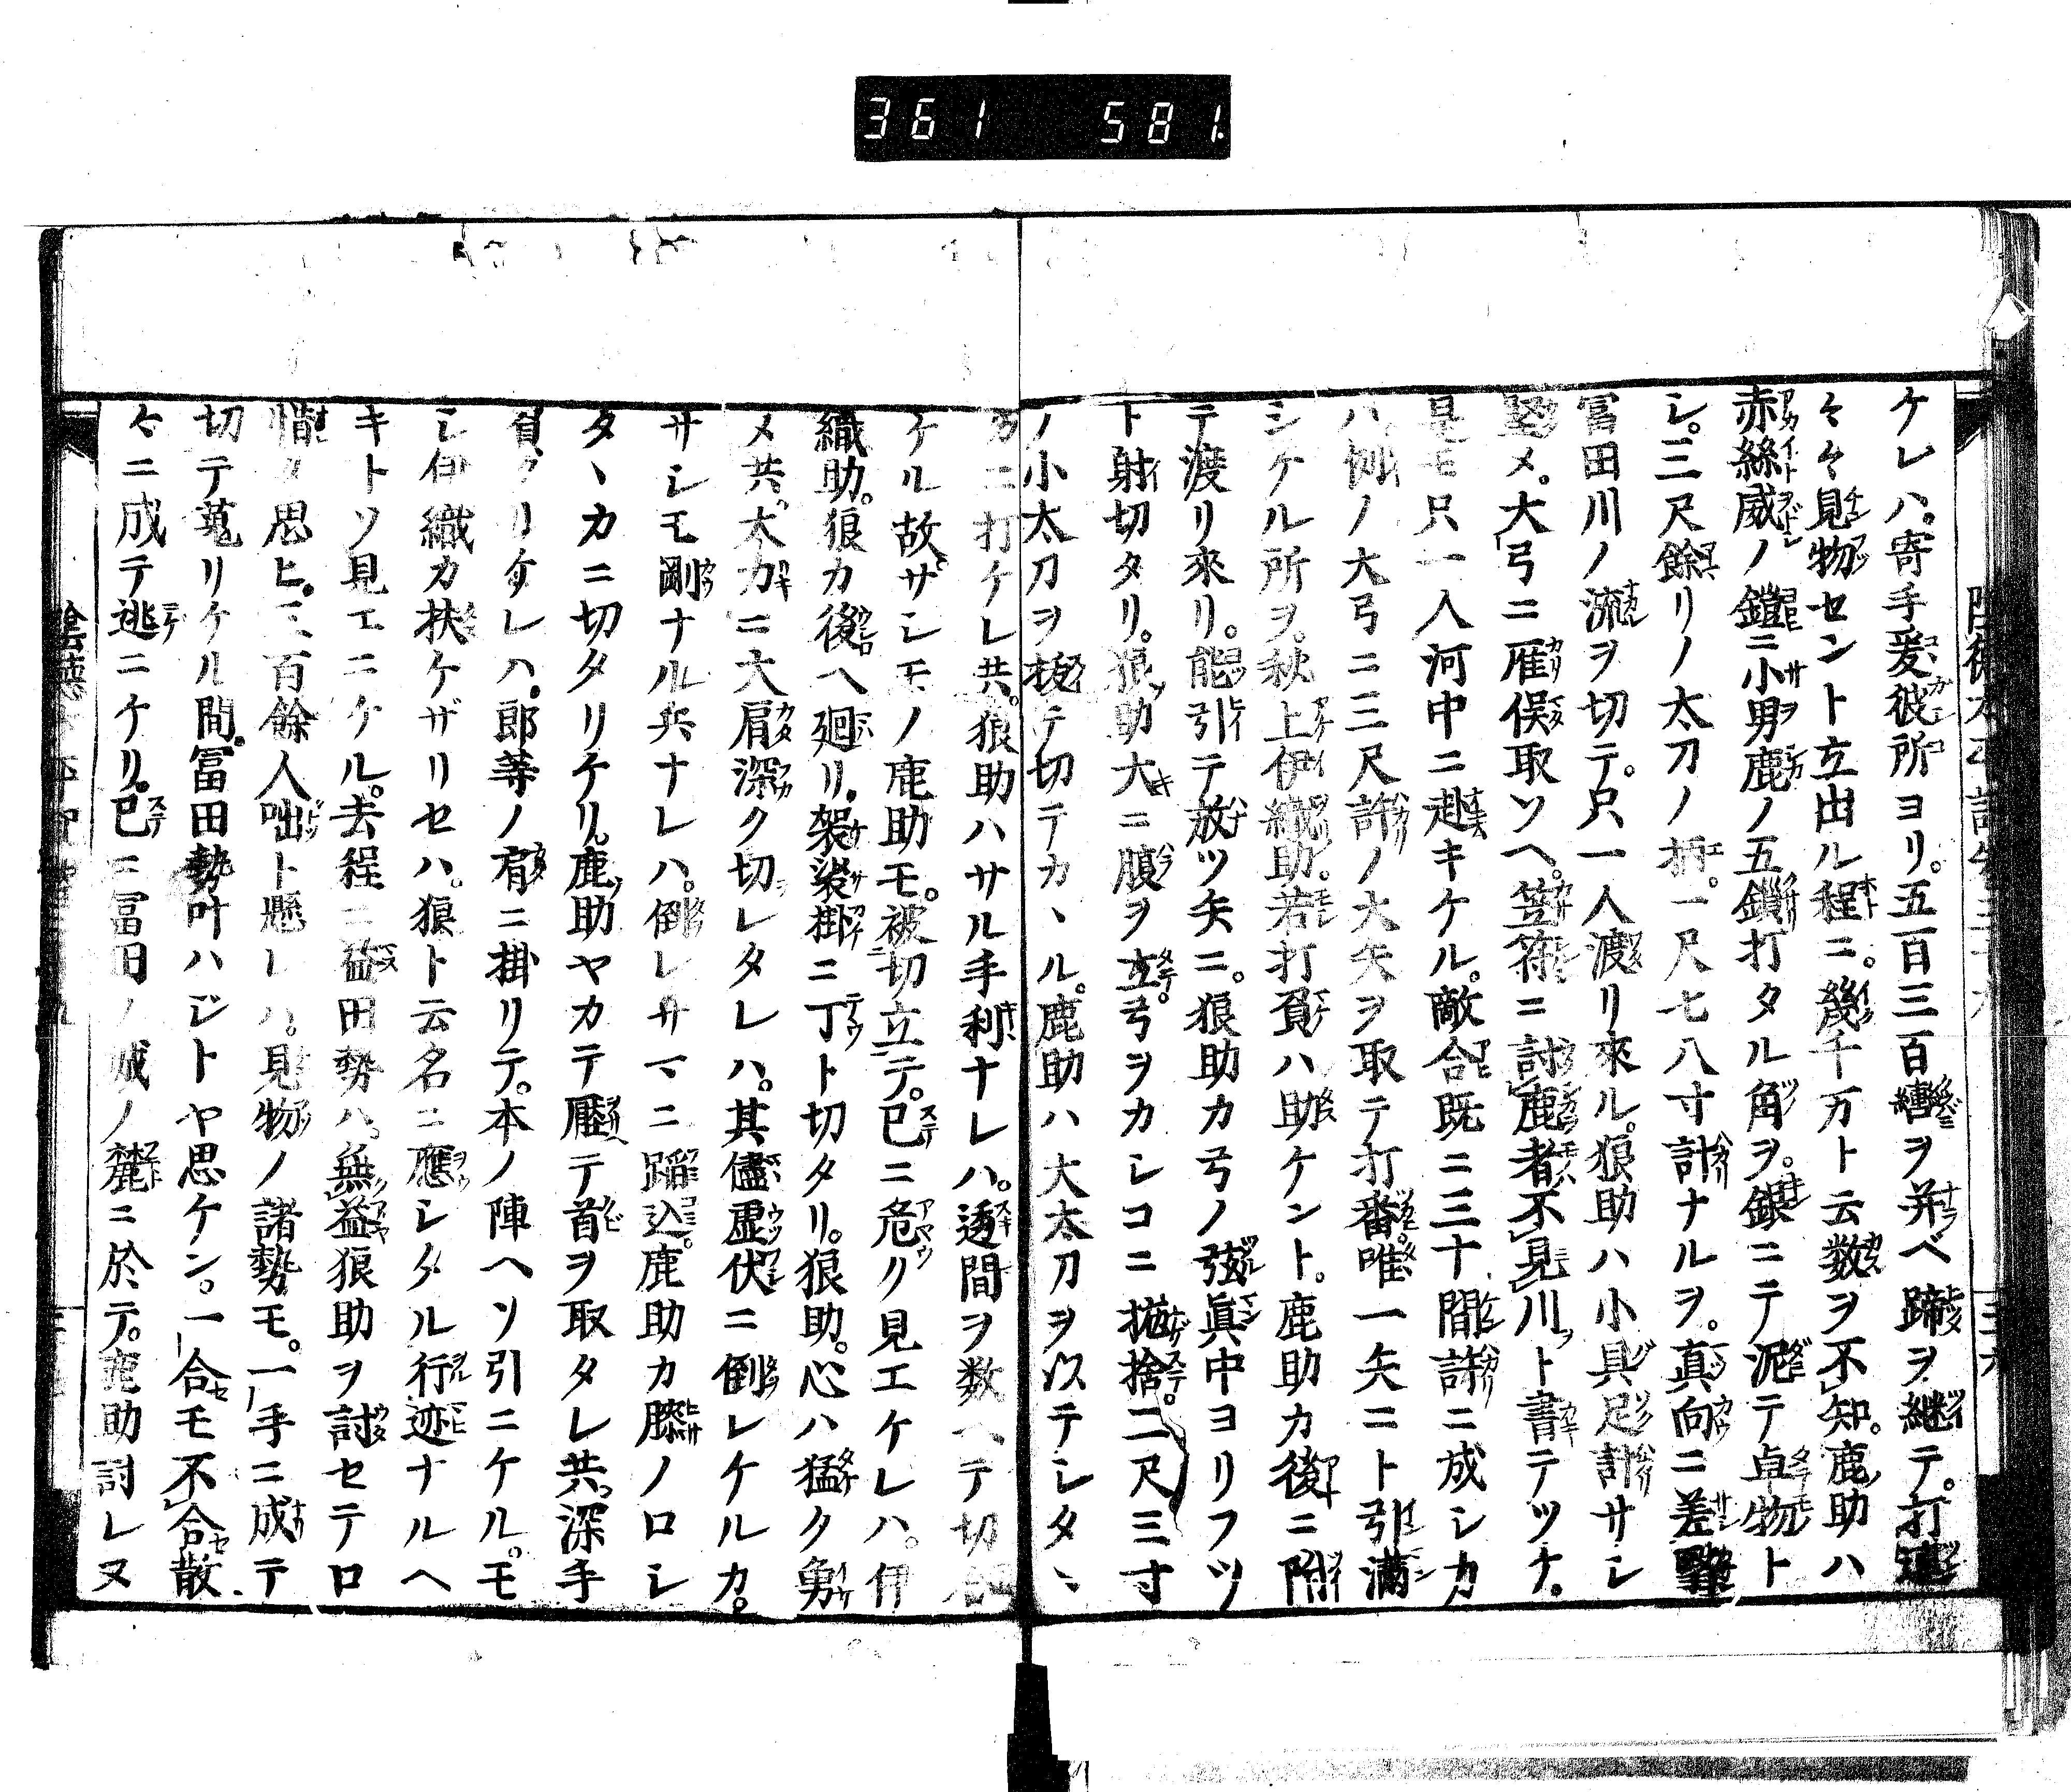 361 581
ケレハ。寄手爰彼所ヨリ。五百三百轡ヲ并ベ蹄ヲ継テ。打連
々々見物セント立出ル程ニ。幾千万ト云数ヲ不知。鹿助ハ
赤絲威ノ鎧ニ小男鹿ノ五鎖打タル角ヲ。銀ニテ泥テ卓物ト
シ。三尺餘リノ太刀ノ柄。一尺七八寸計ナルヲ。真向ニ差
冨田川ノ流ヲ切テ。只一人渡リ來ル。狼助ハ小具足計サシ
堅メ。大弓ニ雁俣取ソヘ。笠符ニ討鹿者不見川ト書テツケ。
是モ只一人河中ニ赴キケル。敵合既ニ三十間許ニ成シカ
ハ例ノ大弓ニ三尺許ノ大矢ヲ取テ打番。唯一矢ニト引満
シケル所ヲ。秋上伊織助。若打負ハ助ケント。鹿助カ後ニ附
テ渡リ來リ。能引テ放ツ矢ニ。狼助カ弓ノ弦眞中ヨリフツ
ト射切タリ。狼助大ニ腹ヲ立。弓ヲカシコニ捨。二尺三寸
ノ小太刀ヲ抜テ切テカヽル。鹿助ハ大太刀ヲ以テシタヽ
カニ打ケレ共。狼助ハサル手利ナレハ。透間ヲ数ヘテ切
ケル故。サシモノ鹿助モ。被切立テ。已ニ危ク見エケレハ。伊
織助。狼カ後ヘ廻リ。袈裟掛ニ丁ト切タリ。狼助。心ハ猛ク勇
メ共。大力ニ大肩深ク切レタレハ。其儘虚伏ニ倒レケルカ。
サシモ剛ナル兵ナレハ。倒レサマニ蹈込。鹿助カ膝ノロシ
タヽカニ切タリケリ。鹿助ヤカテ壓テ首ヲ取タレ共。深手
負タリケレハ。郎等ノ肩ニ掛リテ。本ノ陣ヘソ引ニケル。モ
シ伊織カ扶ケザリセハ。狼ト云名ニ應シタル行迹ナルヘ
キトソ見エニケル。去程ニ益田勢ハ。無益狼助ヲ討セテロ
惜ク思ヒ。三百餘人咄ト懸レハ。見物ノ諸勢モ。一手ニ成テ
切テ蒐リケル間。冨田勢叶ハジトヤ思ケン。一合モ不合散
々ニ成テ逃ニケリ。已ニ冨田ノ城ノ麓ニ於テ。鹿助討レヌ